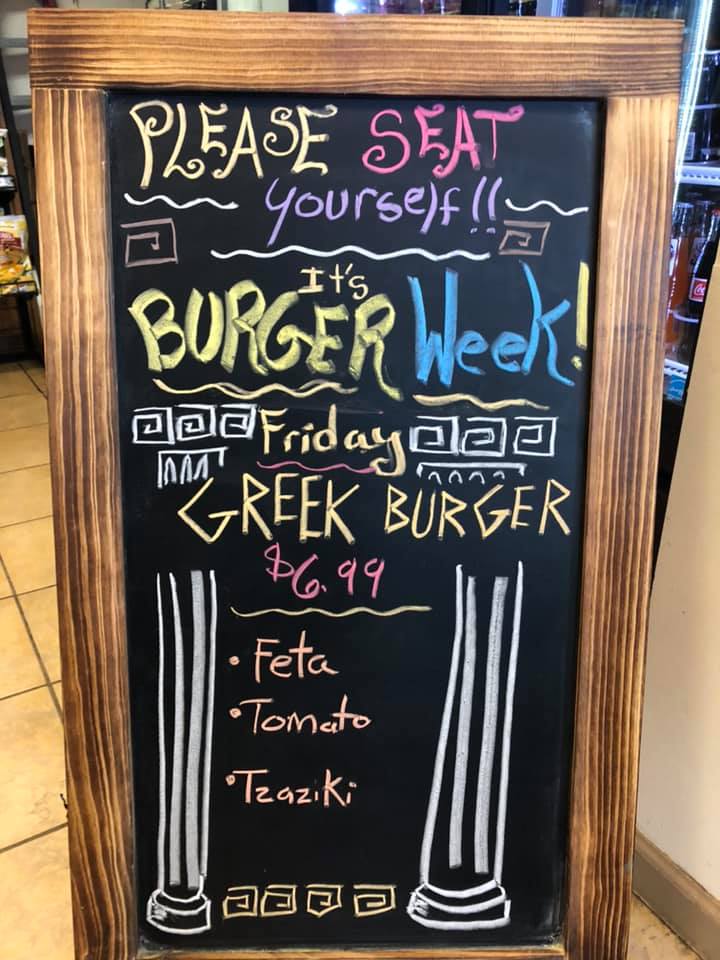 PLEASE SEAT
yourself!!
It's
BURGER Week!
Friday
GREEK BURGER
$6.99
• Feta
• Tomato
• Tzaziki